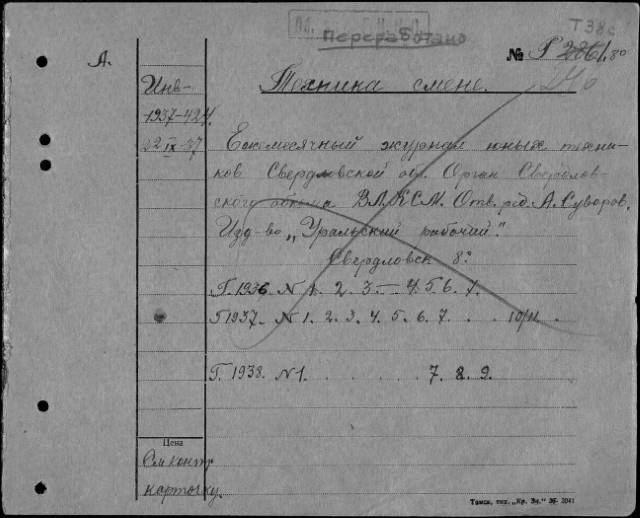 Переработано
Т38с
А.
№ Г 2861.80
Инв-
1937-424.
22 IX-37
Техника смене.
Ежемесячный журнал юных техни-
ков Свердловской обл. Орган Свердлов-
ского обкома ВЛКСМ. Отв. ред. А. Суворов.
Изд-во „Уральский рабочий".
Свердловск 8°
Г. 1936 N 1. 2. 3 — 4. 5. 6. 7.
Г 1937. N 1. 2. 3. 4. 5. 6. 7. . . 10/11 .
Г. 1938. N 1. . . . . . 7. 8. 9.
Цена
См контр
карточку.
Томск, тип. „Кр. Зн."